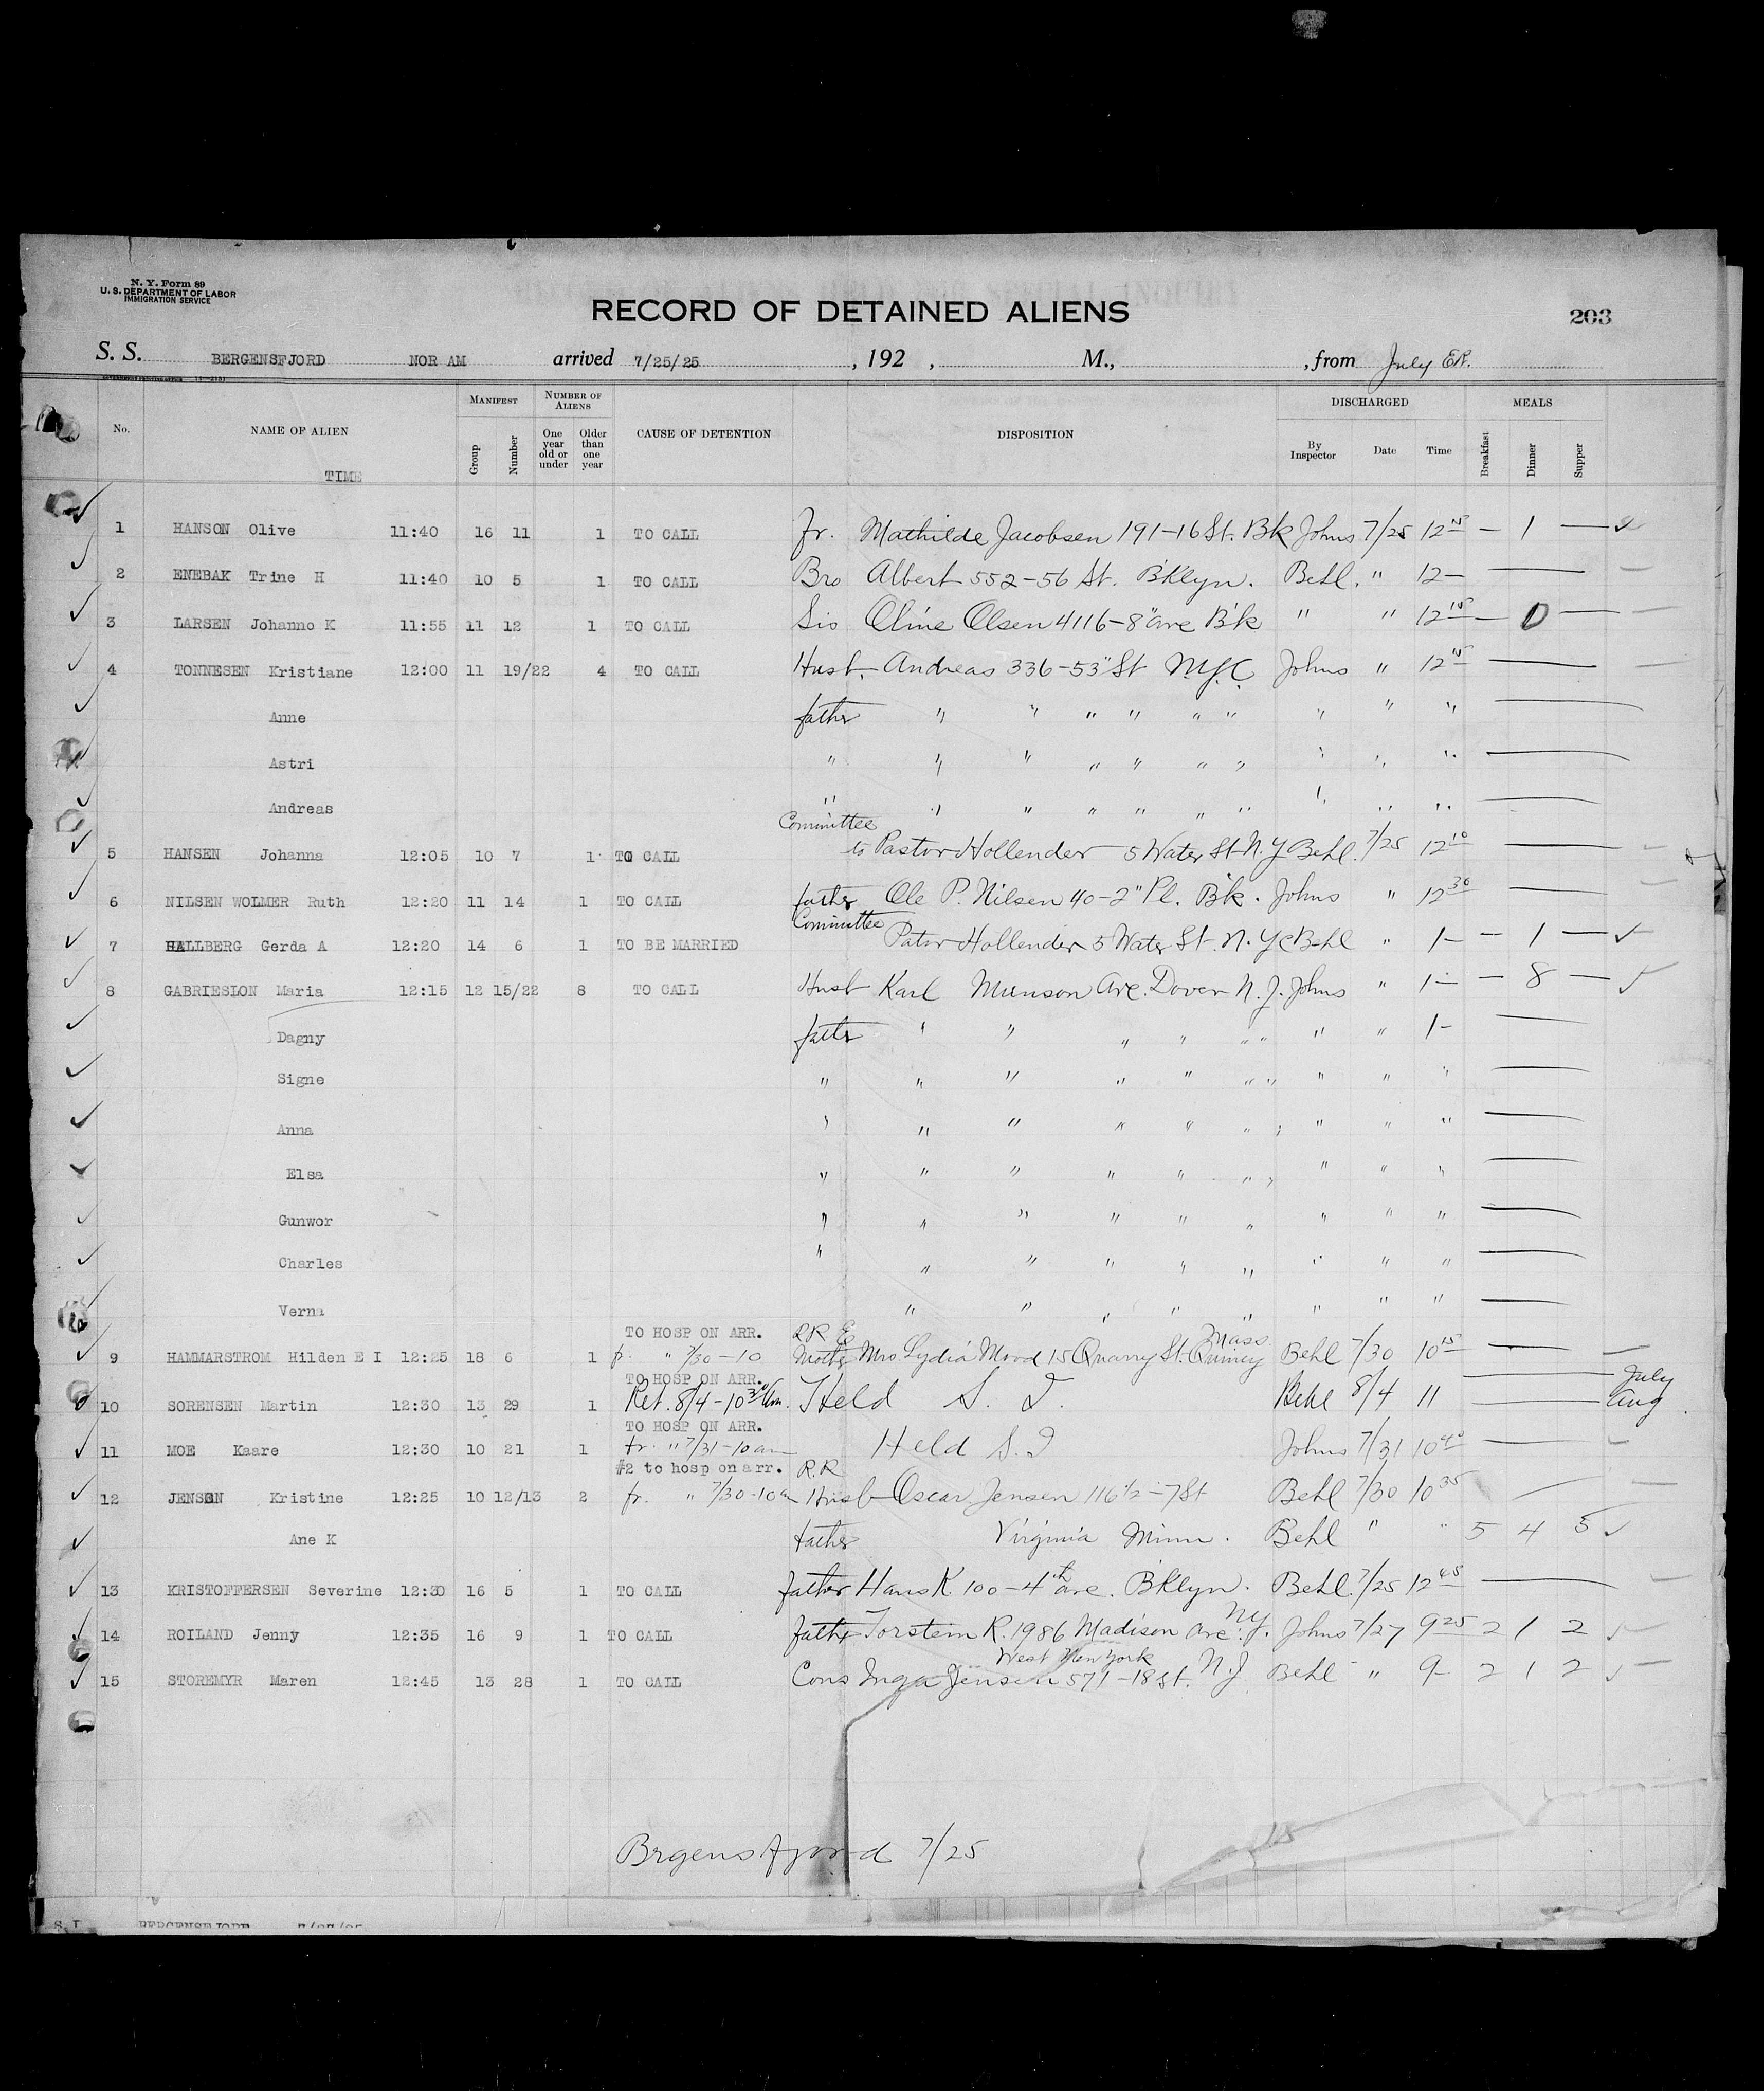 N. Y. Form 89
U. S. DEPARTMENT OF LABOR
IMMIGRATION SERVICE
RECORD OF DETAINED ALIENS
203
S. S. BERGENSFJORD NOR AM arrived 7/25/25 , 192 , M., , from July ER.
No. NAME OF ALIEN TIME MANIFEST Group Number NUMBER OF ALIENS One year old or under Older than one year CAUSE OF DETENTION DISPOSITION DISCHARGED By Inspector Date Time MEALS Breakfast Dinner Supper
1 HANSON Olive 11:40 16 11 1 TO CALL Fr. Mathilde Jacobsen 191-16 St. Bk Johns 7/25 12 15 — 1 —
2 ENEBAK Trine H 11:40 10 5 1 TO CALL Bro Albert 552-56 St. B'klyn. Behl. " 12—
3 LARSEN Johanno K 11:55 11 12 1 TO CALL Sis Oline Olsen 4116-8" ave B'k " " 12 15 — 0 —
4 TONNESEN Kristiane 12:00 11 19/22 4 TO CALL Husb. Andreas 336-53" St N.Y.C. Johns " 12 15
Anne father " " " " " " " " "
Astri " " " " " " " " " "
Andreas " " " " " " " " " "
Committee
5 HANSEN Johanna 12:05 10 7 1 TO CALL to Pastor Hollender 5 Water St N.Y Behl. 7/25 12 10
6 NILSEN WOLMER Ruth 12:20 11 14 1 TO CALL father Ole P. Nilsen 40-2" Pl. Bk. Johns " 12 30
Committee
7 HALLBERG Gerda A 12:20 14 6 1 TO BE MARRIED Pator Hollender 5 Water St. N.YC Behl " 1— — 1 —
8 GABRIESLON Maria 12:15 12 15/22 8 TO CALL Husb Karl Munson Ave. Dover N.J. Johns " 1— — 8 —
Dagny father " " " " " " " " 1-
Signe " " " " " " " " " "
Anna " " " " " " " " " "
Elsa " " " " " " " " " "
Gunwor " " " " " " " " "
Charles " " " " " " " " "
Verna " " " " " " " "
TO HOSP ON ARR. R R E Mass
9 HAMMARSTROM Hilden E I 12:25 18 6 1 fr. " 7/30-10 Mother Mrs Lydia Mood 15 Quarry St. Quincy Behl 7/30 10 15
TO HOSP ON ARR. July
10 SORENSEN Martin 12:30 13 29 1 Ret. 8/4-10 30 am. Held S. I. Behl 8/4 11 Aug.
TO HOSP ON ARR.
11 MOE Kaare 12:30 10 21 1 fr. " 7/31-10 am Held S.I Johns 7/31 10 40
#2 to hosp on arr. R.R
12 JENSEN Kristine 12:25 10 12/13 2 fr. " 7/30-10 a Husb Oscar Jensen 116 1/2-7 St Behl 7/30 10 35
Ane K father Virginia Minn. Behl " " 5 4 5
13 KRISTOFFERSEN Severine 12:30 16 5 1 TO CALL father Hans K. 100-4th ave. B'klyn. Behl. 7/25 12 45
14 ROILAND Jenny 12:35 16 9 1 TO CALL father Torstein R. 1986 Madison ave. N.Y. Johns 7/27 9 25 2 1 2
West New York
15 STOREMYR Maren 12:45 13 28 1 TO CALL Cons Inga Jensen 571-18 St. N.J Behl " 9— 2 1 2
Brgensfjord 7/25
S I BERGENSFJORD 7/27/25